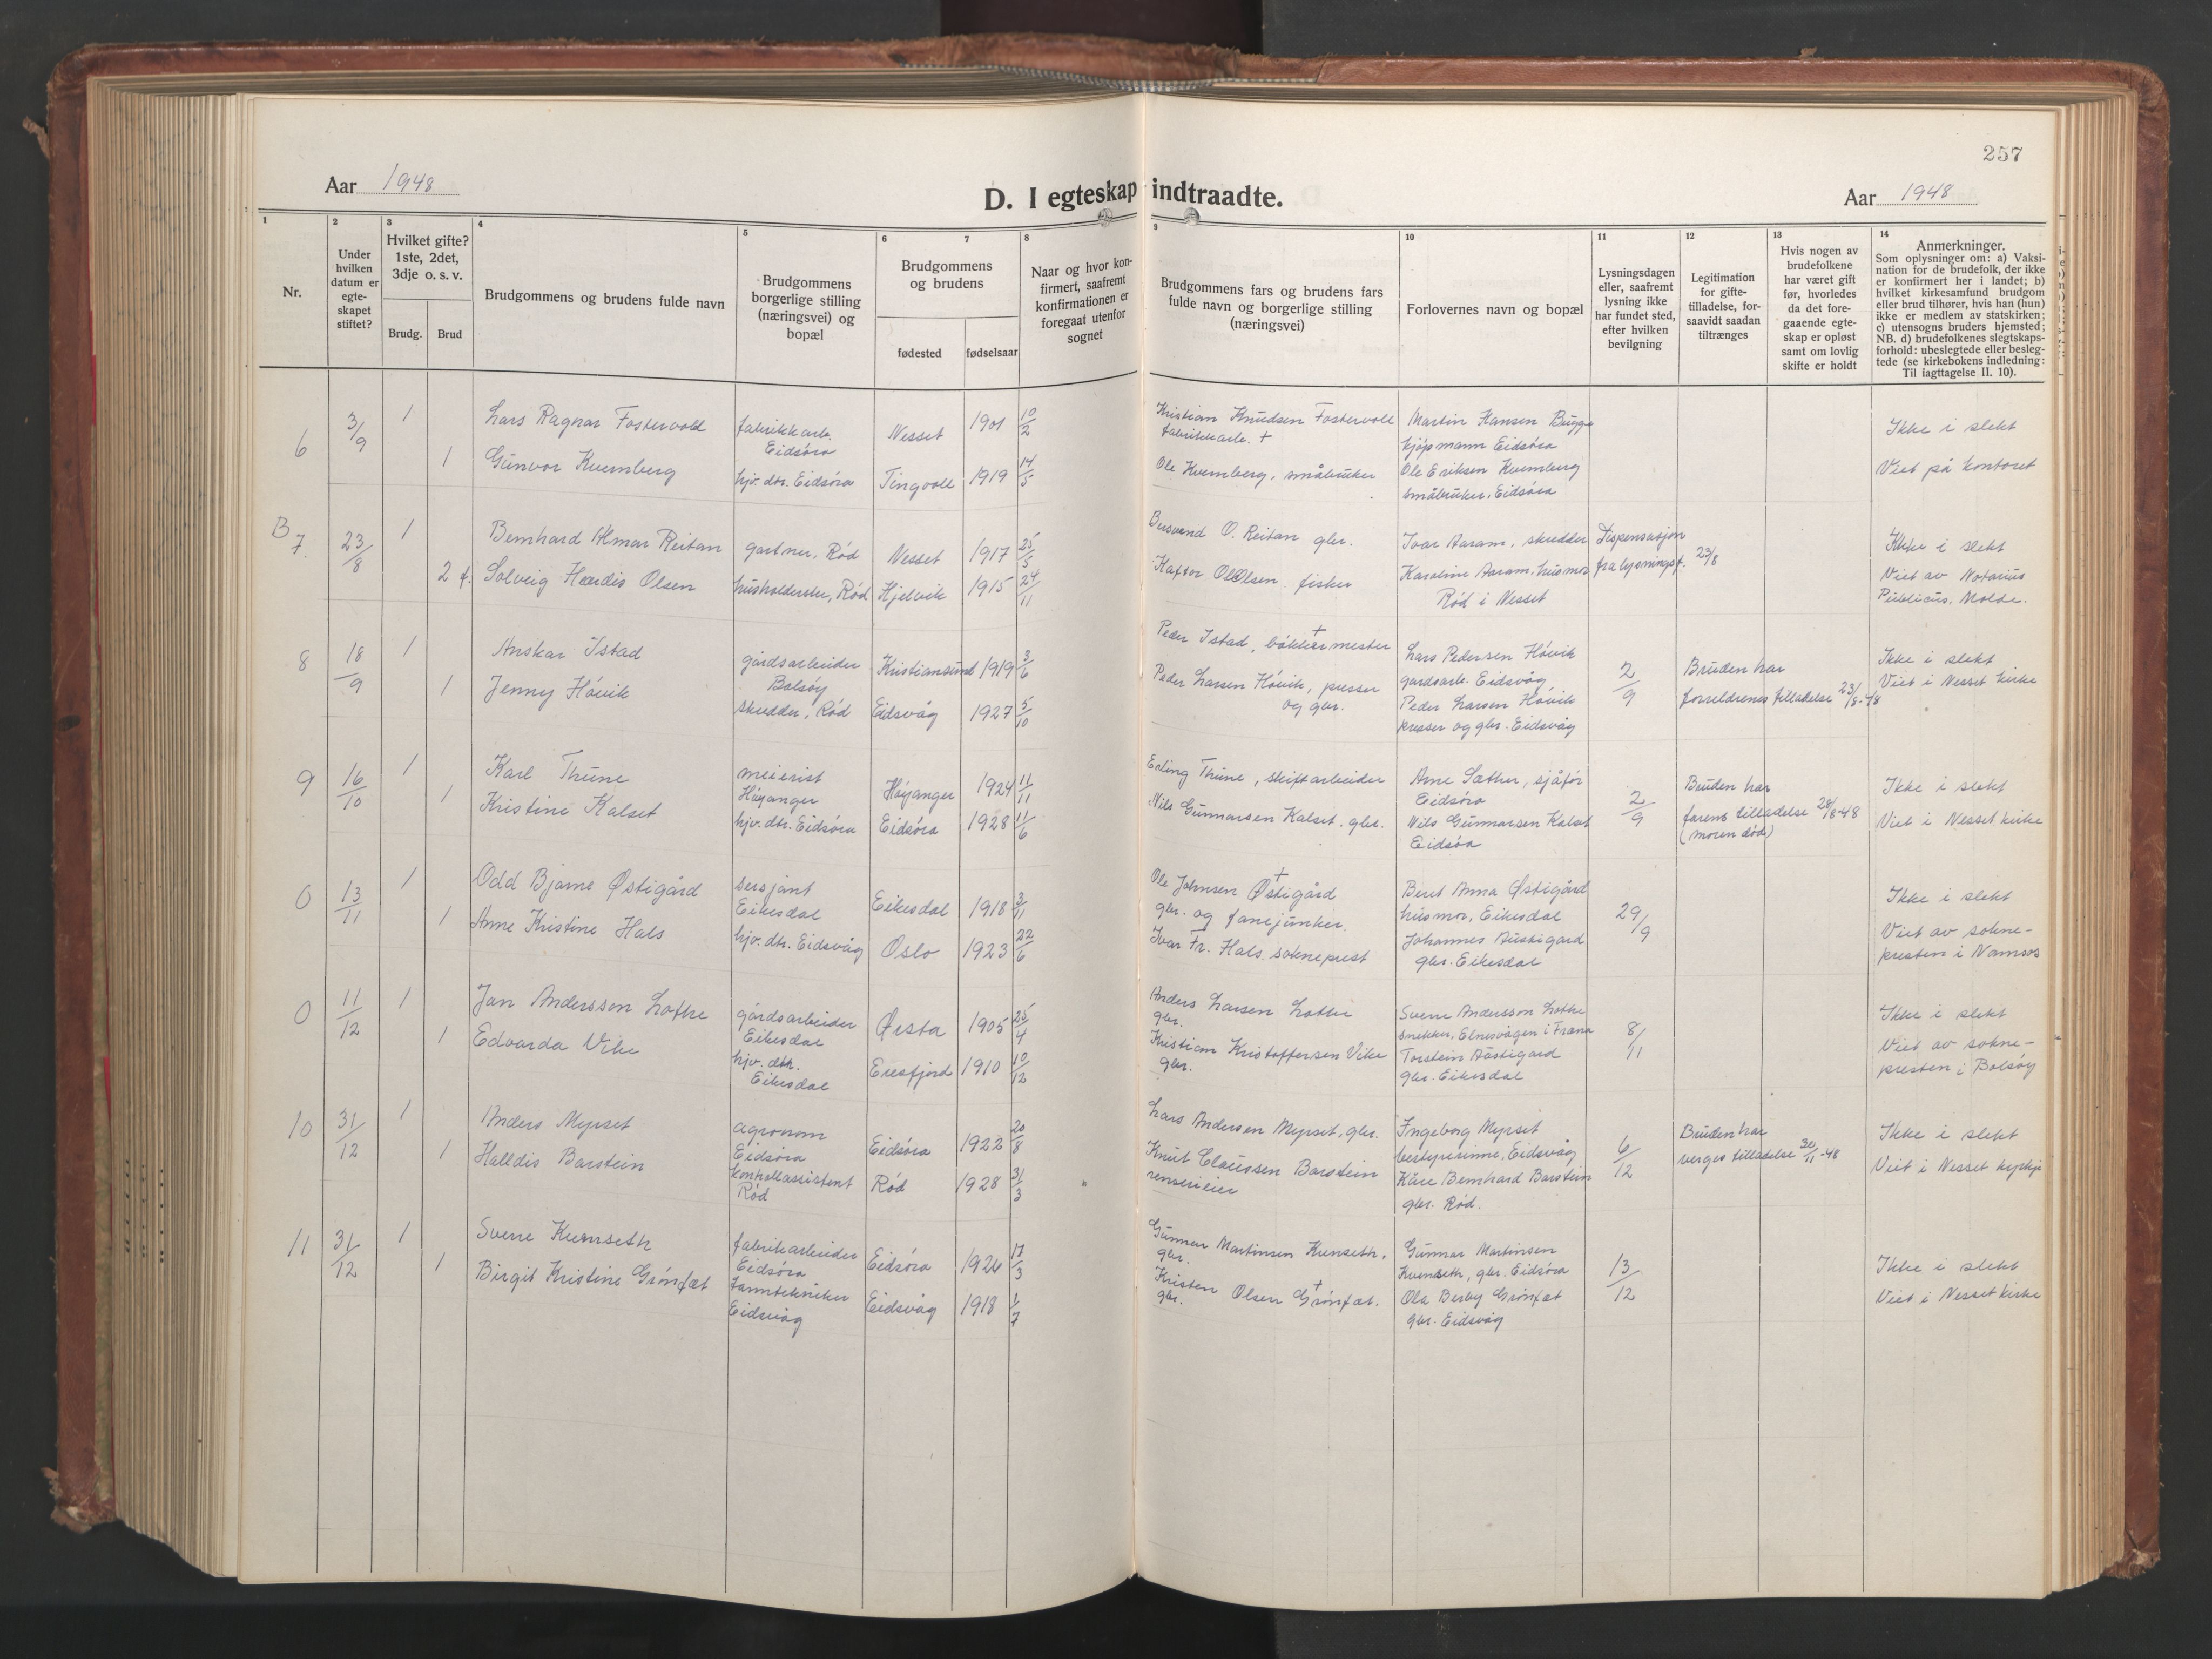 257
Aar 1948
D. I egteskap indtraadte.
Aar 1948
1
2
3
4
5
6
7
8
9
10
11
12
13
14
Nr.
Under
hvilken
datum er
egte-
skapet
stiftet?
Hvilket gifte?
1ste, 2det,
3dje o. s. v.
Brudg.
Brud
Brudgommens og brudens fulde navn
Brudgommens
borgerlige stilling
(næringsvei) og
bopæl
Brudgommens
og brudens
fødested
fødselsaar
Naar og hvor kon-
firmert, saafremt
konfirmationen er
foregaat utenfor
sognet
Brudgommens fars og brudens fars
fulde navn og borgerlige stilling
(næringsvei)
Forlovernes navn og bopæl
Lysningsdagen
eller, saafremt
lysning ikke
har fundet sted,
efter hvilken
bevilgning
Legitimation
for gifte-
tilladelse, for-
saavidt saadan
tiltrænges
Hvis nogen av
brudefolkene
har været gift
før, hvorledes
da det fore-
gaaende egte-
skap er opløst
samt om lovlig
skifte er holdt
Anmerkninger.
Som oplysninger om: a) Vaksi-
nation for de brudefolk, der ikke
er konfirmert her i landet; b)
hvilket kirkesamfund brudgom
eller brud tilhører, hvis han (hun)
ikke er medlem av statskirken;
c) utensogns bruders hjemsted;
NB. d) brudefolkenes slegtskaps-
forhold: ubeslegtede eller besleg-
tede (se kirkebokens indledning:
Til iagttagelse II. 10).
6
3/9
1
Lars Ragnar Fostervold
fabrikkarb.
Eidsøra
Nesset
1901
10/2
1
Gunvor Kvernberg
hjv. dtr. Eidsøra
Tingvoll
1919
14/5
Kristian Knudsen Fostervoll
fabrikkarb. +
Ole Kvernberg, småbruker
Martin Hansen Bugge
kjøpmann Eidsøra
Ole Eriksen Kvernberg
småbruker, Eidsøra
Ikke i slekt
Viet på kontoret
B 7.
23/8
1
Bernhard Almar Reitan
gartner, Rød
Nesset
1917
25/5
2 f.
Solveig Herdis Olsen
husholderske, Rød
Hjelvik
1915
24/11
Bersvend O. Reitan gbr.
Kaftor Ol. Olsen fisker
Ivar Aaram, skredder
Karoline Aaram, husmor
Rød i Nesset
Dispensasjon
fra lysningsf. 23/8
Ikke i slekt
Viet av Notarius
Publicus, Molde.
8
18/9
1
Anskar Istad
gårdsarbeider
Bolsøy
Kristiansund
1919
3/6
1
Jenny Høvik
skredder, Rød
Eidsvåg
1927
5/10
Peder Istad, bøkkermester +
Peder Larsen Høvik, presser
og gbr.
Lars Pedersen Høvik
gardsarb. Eidsvåg
Peder Larsen Høvik
presser og gbr. Eidsvåg
2/9
Bruden har
foreldrenes tilladelse 23/8-48
Ikke i slekt
Viet i Nesset kirke
9
16/10
1
Karl Thune
meierist
Høyanger
Høyanger
1924
11/11
1
Kristine Kalset
hjv. dtr. Eidsøra
Eidsøra
1928
11/6
Erling Thune, skiftarbeider
Nils Gunnarsen Kalset. gbr.
Arne Sæther, sjåfør
Eidsøra
Nils Gunnarsen Kalset
Eidsøra
2/9
Bruden har
farens tilladelse 28/8-48
(moren død)
Ikke i slekt
Viet i Nesset kirke
0
13/11
1
Odd Bjarne Østigård
sersjant
Eikesdal
Eikesdal
1918
3/11
1
Anne Kristine Hals
hjv. dtr. Eidsvåg
Oslo
1923
22/6
Ole Johnsen Østigård +
gbr. og fanejunker.
Ivar Fr. Hals sokneprest
Berit Anna Østigård
husmor, Eikesdal
Johannes Austigard
gbr. Eikesdal
29/9
Ikke i slekt
Viet av sokne-
presten i Namsos
0
11/12
1
Jan Andersson Lothe
gårdsarbeider
Eikesdal
Ørsta
1905
25/4
1
Edvarda Vike
hjv. dtr.
Eikesdal
Eresfjord
1910
10/12
Anders Larsen Lothe
gbr.
Kristian Kristoffersen Vike
gbr.
Sverre Andersson Lothe
snekker, Elnesvågen i Fræna
Torstein Austigard
gbr. Eikesdal
8/11
Ikke i slekt
Viet av sokne-
presten i Bolsøy
10
31/12
1
Anders Myrset
agronom
Eidsøra
Eidsøra
1922
20/8
1
Halldis Barstein
kontrollassistent
Rød
Rød
1928
31/3
Lars Andersen Myrset, gbr.
Knut Claussen Barstein
renserieier
Ingeborg Myrset
bestyrerinne, Eidsvåg
Kåre Bernhard Barstein
gbr. Rød.
6/12
Bruden har
verges tilladelse 30/11-48
Ikke i slekt
Viet i Nesset kyrkje
11
31/12
1
Sverre Kvernseth
fabrikarbeider
Eidsøra
Eidsøra
1926
17/3
1
Birgit Kristine Grønfæt
tanntekniker
Eidsvåg
Eidsvåg
1918
1/7
Gunnar Martinsen Kvnseth.
gbr.
Kristen Olsen Grønfæt. +
gbr.
Gunnar Martinsen
Kvernseth, gbr. Eidsøra
Ola Berby Grønfæt
gbr. Eidsvåg
13/12
Ikke i slekt
Viet i Nesset kirke